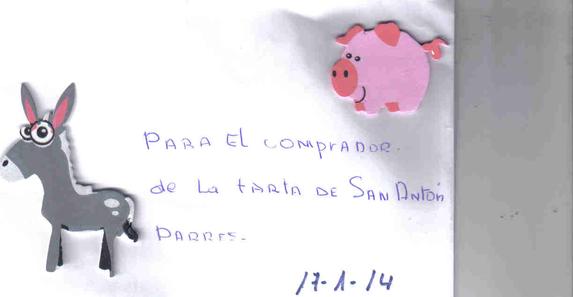 PARA El comprador.
de La tarta DE San Antón
PARRES.
17-1-14